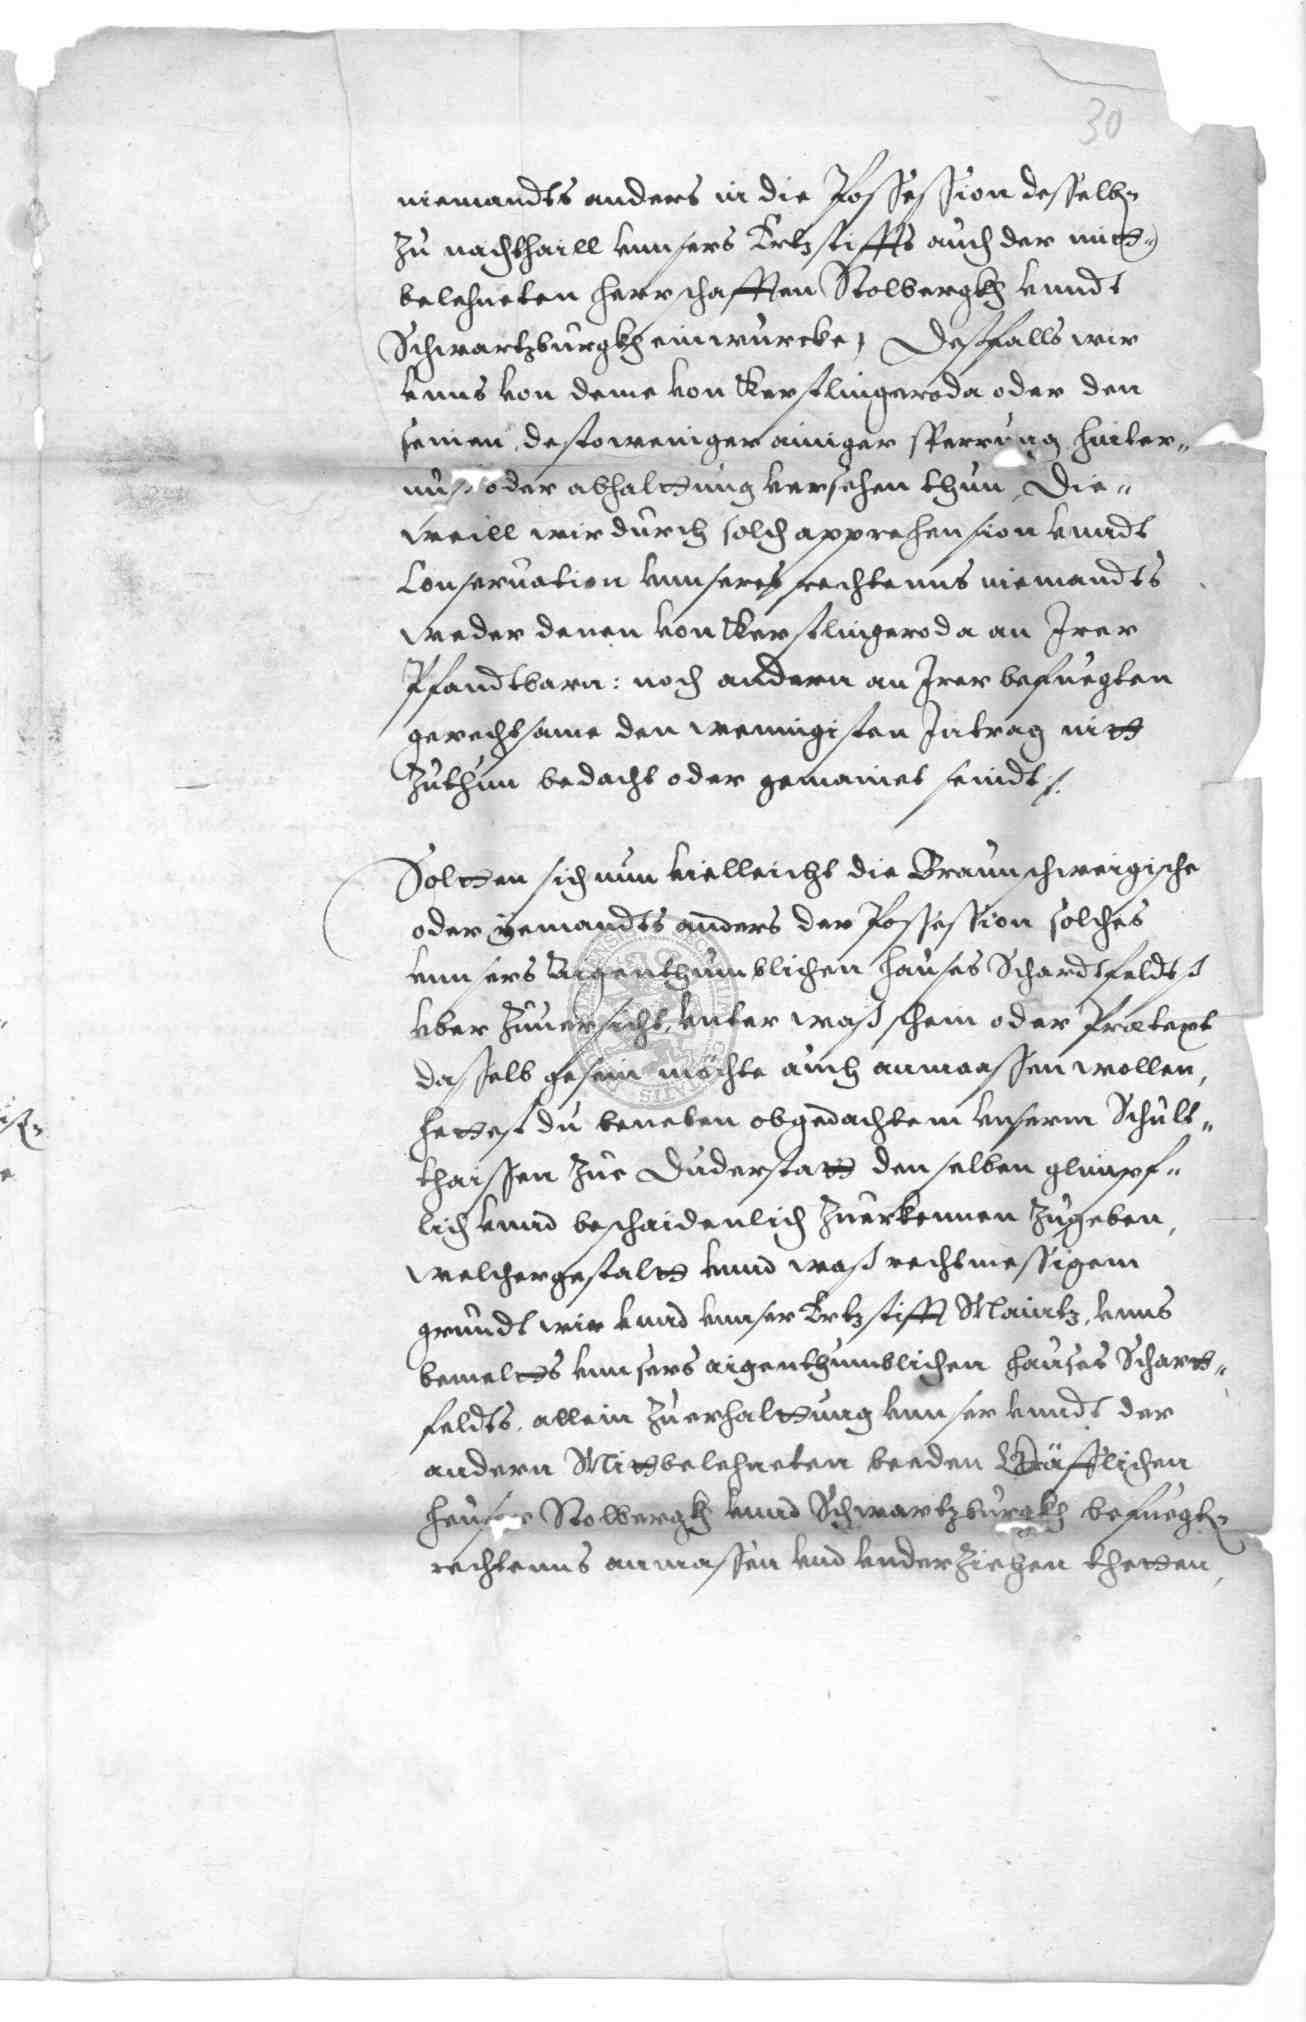 30
niemandts anders in die Possession desselb
zu nachthaill vnnsers Ertzstiffts auch der mitt-
belehneten herrschafften Stolbergkh vnndt
Schwartzburgkh einwurcke, Deßfalls wir
vnns von deme von Kerstlingeroda oder den
seinen, destoweniger einiger sperrung, hinter-
nuß oder abhaltung versehen thun, Die-
weill wir durch solch apprehension vnndt
Conseruation vnnseres rechtenns niemandts
weder denen von Kerstlingeroda an Irer
Pfandtbarn: noch andern an Irer befuegten
gerechtsame den wenigisten Intrag nitt
zuthun bedacht oder gemainet seindt
Soltten sich nun vielleicht die Braunschweigische
oder yemandts anders der Possession solches
vnnsers Aigenthumblichen hauses Schardtfeldts
vber zuuersicht, vnter waß schein oder Prætext
dasselb gesein möchte auch anmaassen wollen,
hettest du beneben obgedachtem vnserm Schult-
thaissen zue Duderstatt denselben glimpf-
lich vnnd beschaidenlich zuerkennen zugeben,
welchergestaltt vnnd waß rechtmessigem
grundt wir vnnd vnnser Ertzstifft Maintz, vnns
bemeltts vnnsers aigenthumblichen hauses Schartt-
feldts, allein zuerhalttung vnnser vnndt der
andern Mittbelehneten beeden Gräfflichen
heuser Stolbergkh vnnd Schwartzburgkh befuegt
rechtenns anmassen vnd vnderziehen thetten,